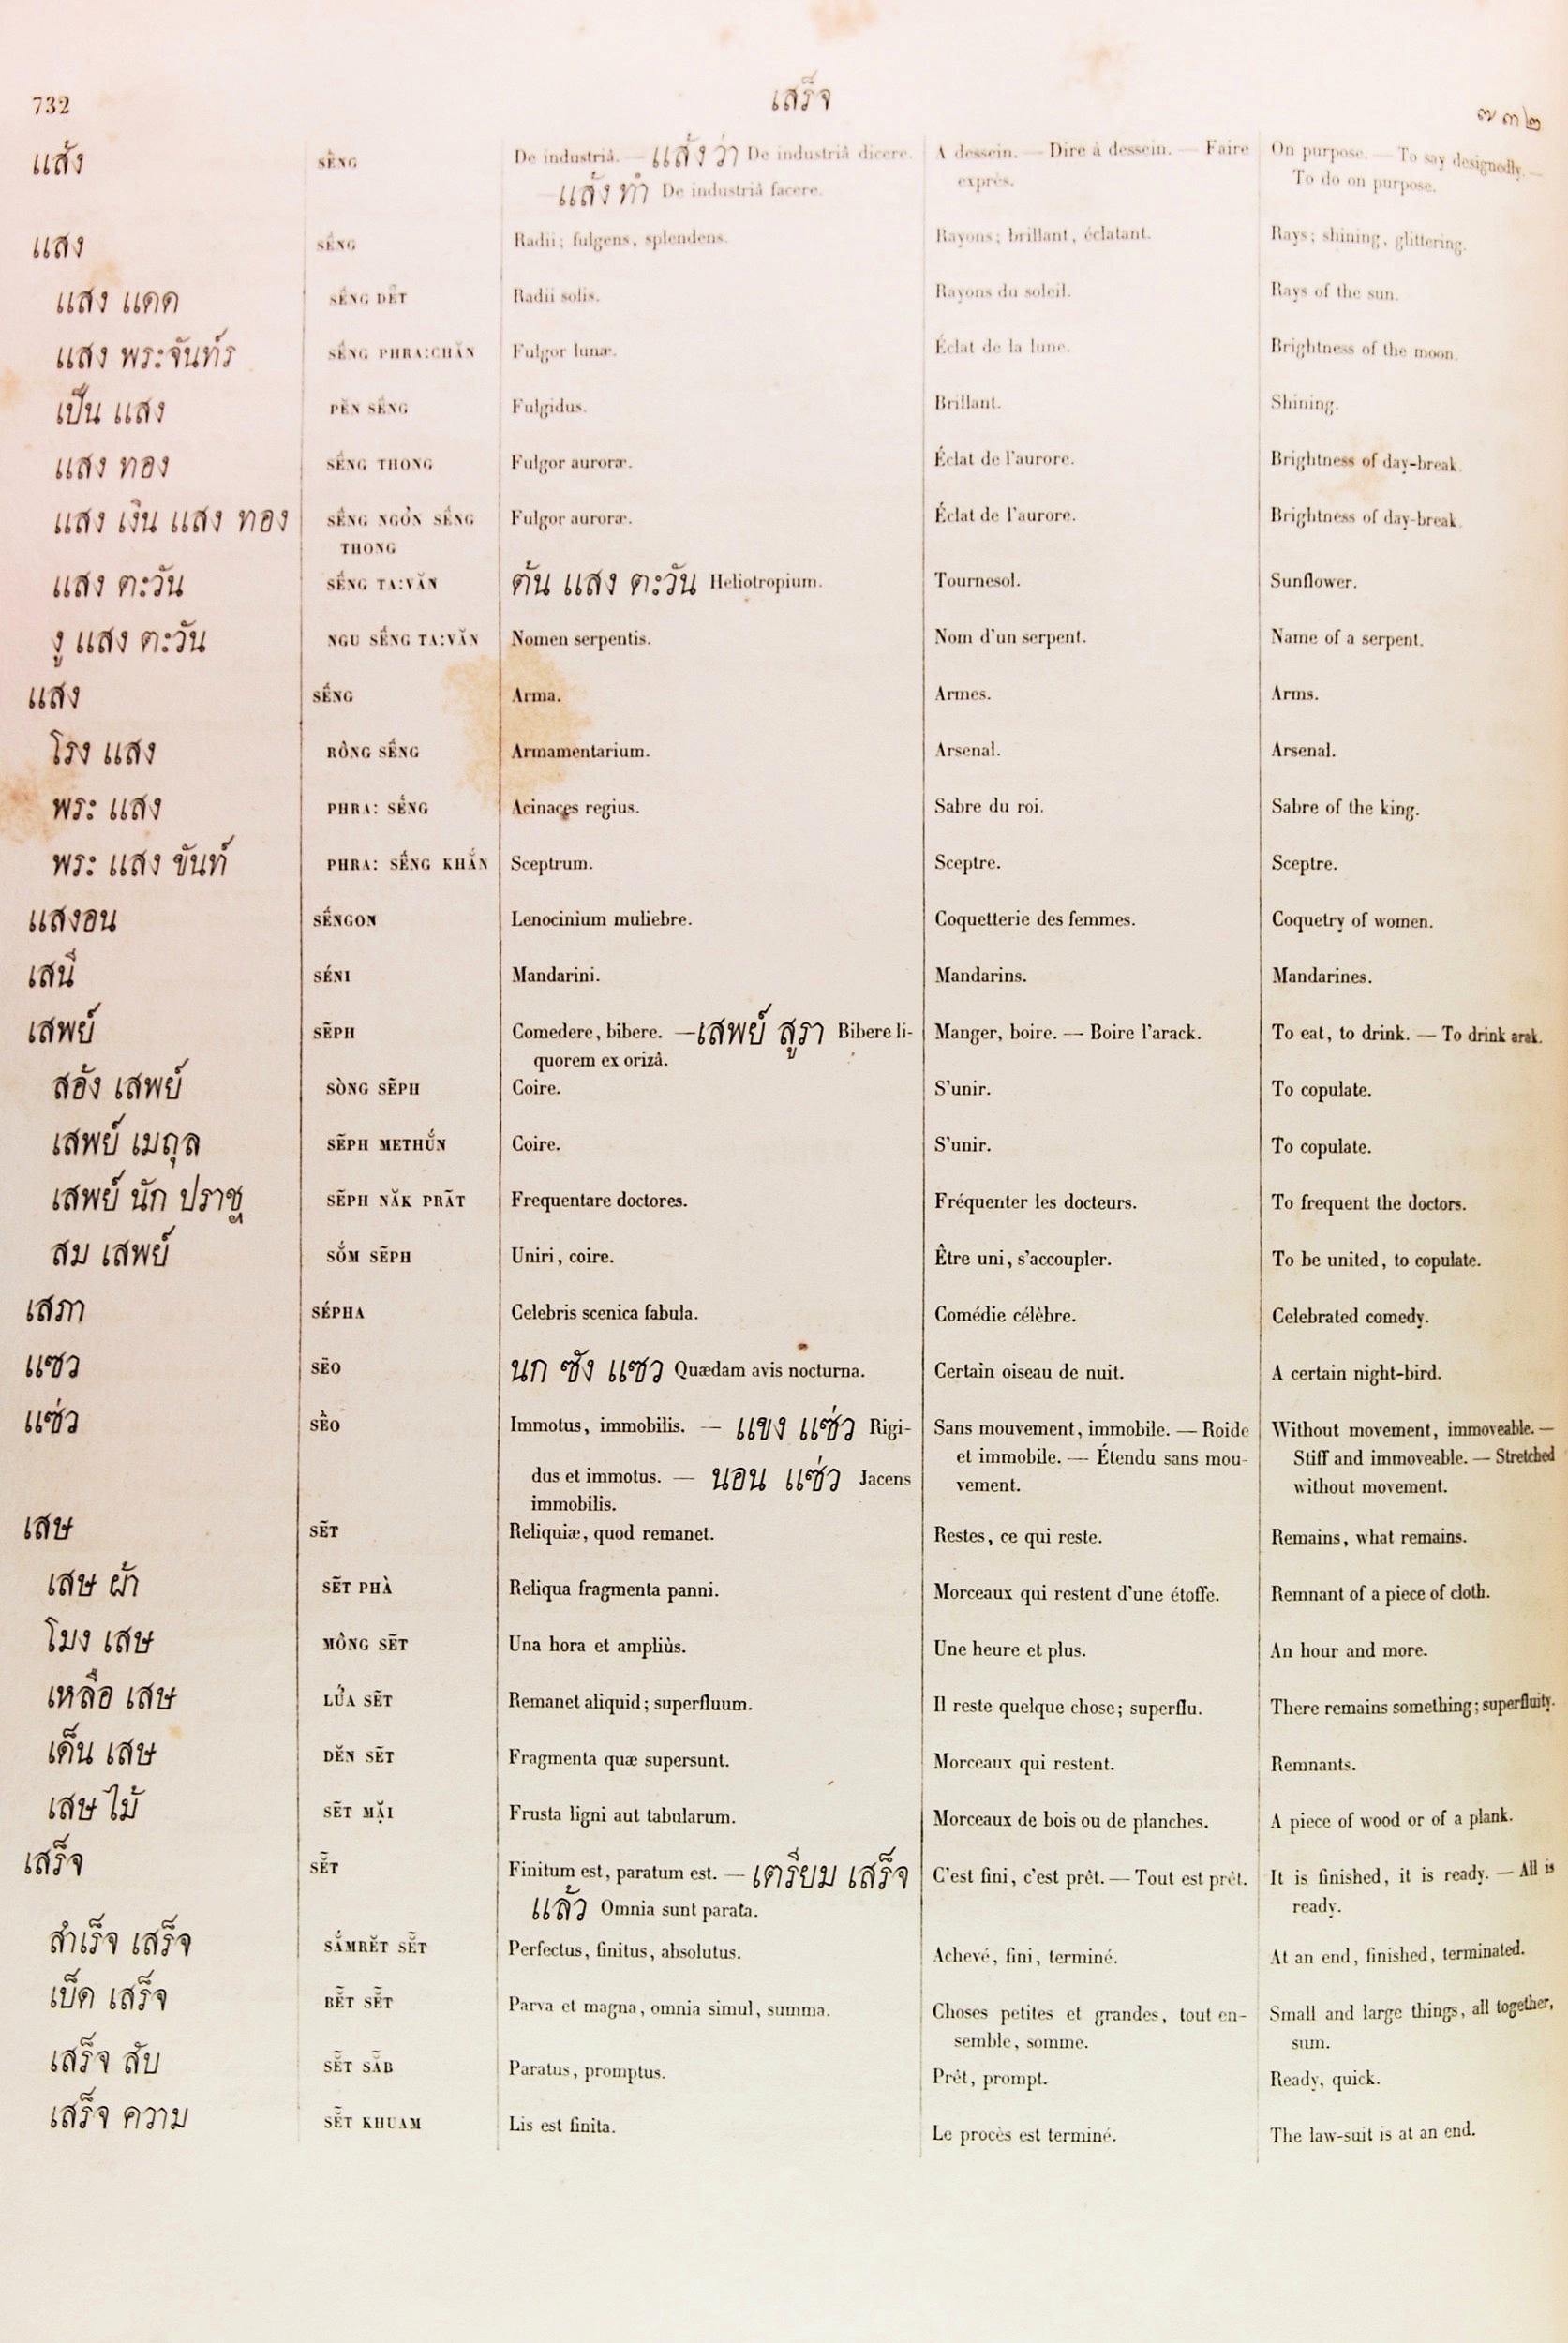 732
เสร็จ
๗๓๒
แส้ง SÈNG De industriâ. — แส้ง ว่า De industriâ dicere. A dessein. — Dire à dessein. — Faire On purpose. — To say designedly. —
— แส้ง ทำ De industriâ facere. exprès. To do on purpose.
แสง SẾNG Radii; fulgens, splendens. Rayons; brillant, éclatant. Rays; shining, glittering.
แสง แดด SẾNG DẼT Radii solis. Rayons du soleil. Rays of the sun.
แสง พระจันท์ร SẾNG PHRA:CHĂN Fulgor lunæ. Éclat de la lune. Brightness of the moon.
เป็น แสง PĔN SẾNG Fulgidus. Brillant. Shining.
แสง ทอง SẾNG THONG Fulgor auroræ. Éclat de l'aurore. Brightness of day-break.
แสง เงิน แสง ทอง SẾNG NGÒN SẾNG Fulgor auroræ. Éclat de l'aurore. Brightness of day-break.
THONG
แสง ตะวัน SẾNG TA:VĂN ต้น แสง ตะวัน Heliotropium. Tournesol. Sunflower.
งู แสง ตะวัน NGU SẾNG TA:VĂN Nomen serpentis. Nom d'un serpent. Name of a serpent.
แสง SẾNG Arma. Armes. Arms.
โรง แสง RÔNG SẾNG Armamentarium. Arsenal. Arsenal.
พระ แสง PHRA: SẾNG Acinaces regius. Sabre du roi. Sabre of the king.
พระ แสง ขันท์ PHRA: SẾNG KHẮN Sceptrum. Sceptre. Sceptre.
แสงอน SẾNGON Lenocinium muliebre. Coquetterie des femmes. Coquetry of women.
เสนี SÉNI Mandarini. Mandarins. Mandarines.
เสพย์ SẼPH Comedere, bibere. — เสพย์ สูรา Bibere li- Manger, boire. — Boire l'arack. To eat, to drink. — To drink arak.
quorem ex orizâ.
ส้อง เสพย์ SÒNG SẼPH Coire. S'unir. To copulate.
เสพย์ เมถุล SẼPH METHŬN Coire. S'unir. To copulate.
เสพย์ นัก ปราชฺ SẼPH NĂK PRÃT Frequentare doctores. Fréquenter les docteurs. To frequent the doctors.
สม เสพย์ SỐM SẼPH Uniri, coire. Être uni, s'accoupler. To be united, to copulate.
เสภา SÉPHA Celebris scenica fabula. Comédie célèbre. Celebrated comedy.
แซว SËO นก ซัง แซว Quædam avis nocturna. Certain oiseau de nuit. A certain night-bird.
แซ่ว SÈO Immotus, immobilis. — แขง แซ่ว Rigi- Sans mouvement, immobile. — Roide Without movement, immoveable. —
dus et immotus. — นอน แซ่ว Jacens et immobile. — Étendu sans mou- Stiff and immoveable. — Stretched
immobilis. vement. without movement.
เสษ SẼT Reliquiæ, quod remanet. Restes, ce qui reste. Remains, what remains.
เสษ ผ้า SẼT PHÀ Reliqua fragmenta panni. Morceaux qui restent d'une étoffe. Remnant of a piece of cloth.
โมง เสษ MÔNG SẼT Una hora et ampliùs. Une heure et plus. An hour and more.
เหลือ เสษ LỬA SẼT Remanet aliquid; superfluum. Il reste quelque chose; superflu. There remains something; superfluity.
เด็น เสษ DĔN SẼT Fragmenta quæ supersunt. Morceaux qui restent. Remnants.
เสษ ไม้ SẼT MẶI Frusta ligni aut tabularum. Morceaux de bois ou de planches. A piece of wood or of a plank.
เสร็จ SẼT Finitum est, paratum est. — เตรียม เสร็จ C'est fini, c'est prêt. — Tout est prêt. It is finished, it is ready. — All is
แล้ว Omnia sunt parata. ready.
สำเร็จ เสร็จ SẮMRĔT SẼT Perfectus, finitus, absolutus. Achevé, fini, terminé. At an end, finished, terminated.
เบ็ด เสร็จ BẼT SẼT Parva et magna, omnia simul, summa. Choses petites et grandes, tout en- Small and large things, all together,
semble, somme. sum.
เสร็จ สับ SẼT SÃB Paratus, promptus. Prêt, prompt. Ready, quick.
เสร็จ ความ SẼT KHUAM Lis est finita. Le procès est terminé. The law-suit is at an end.